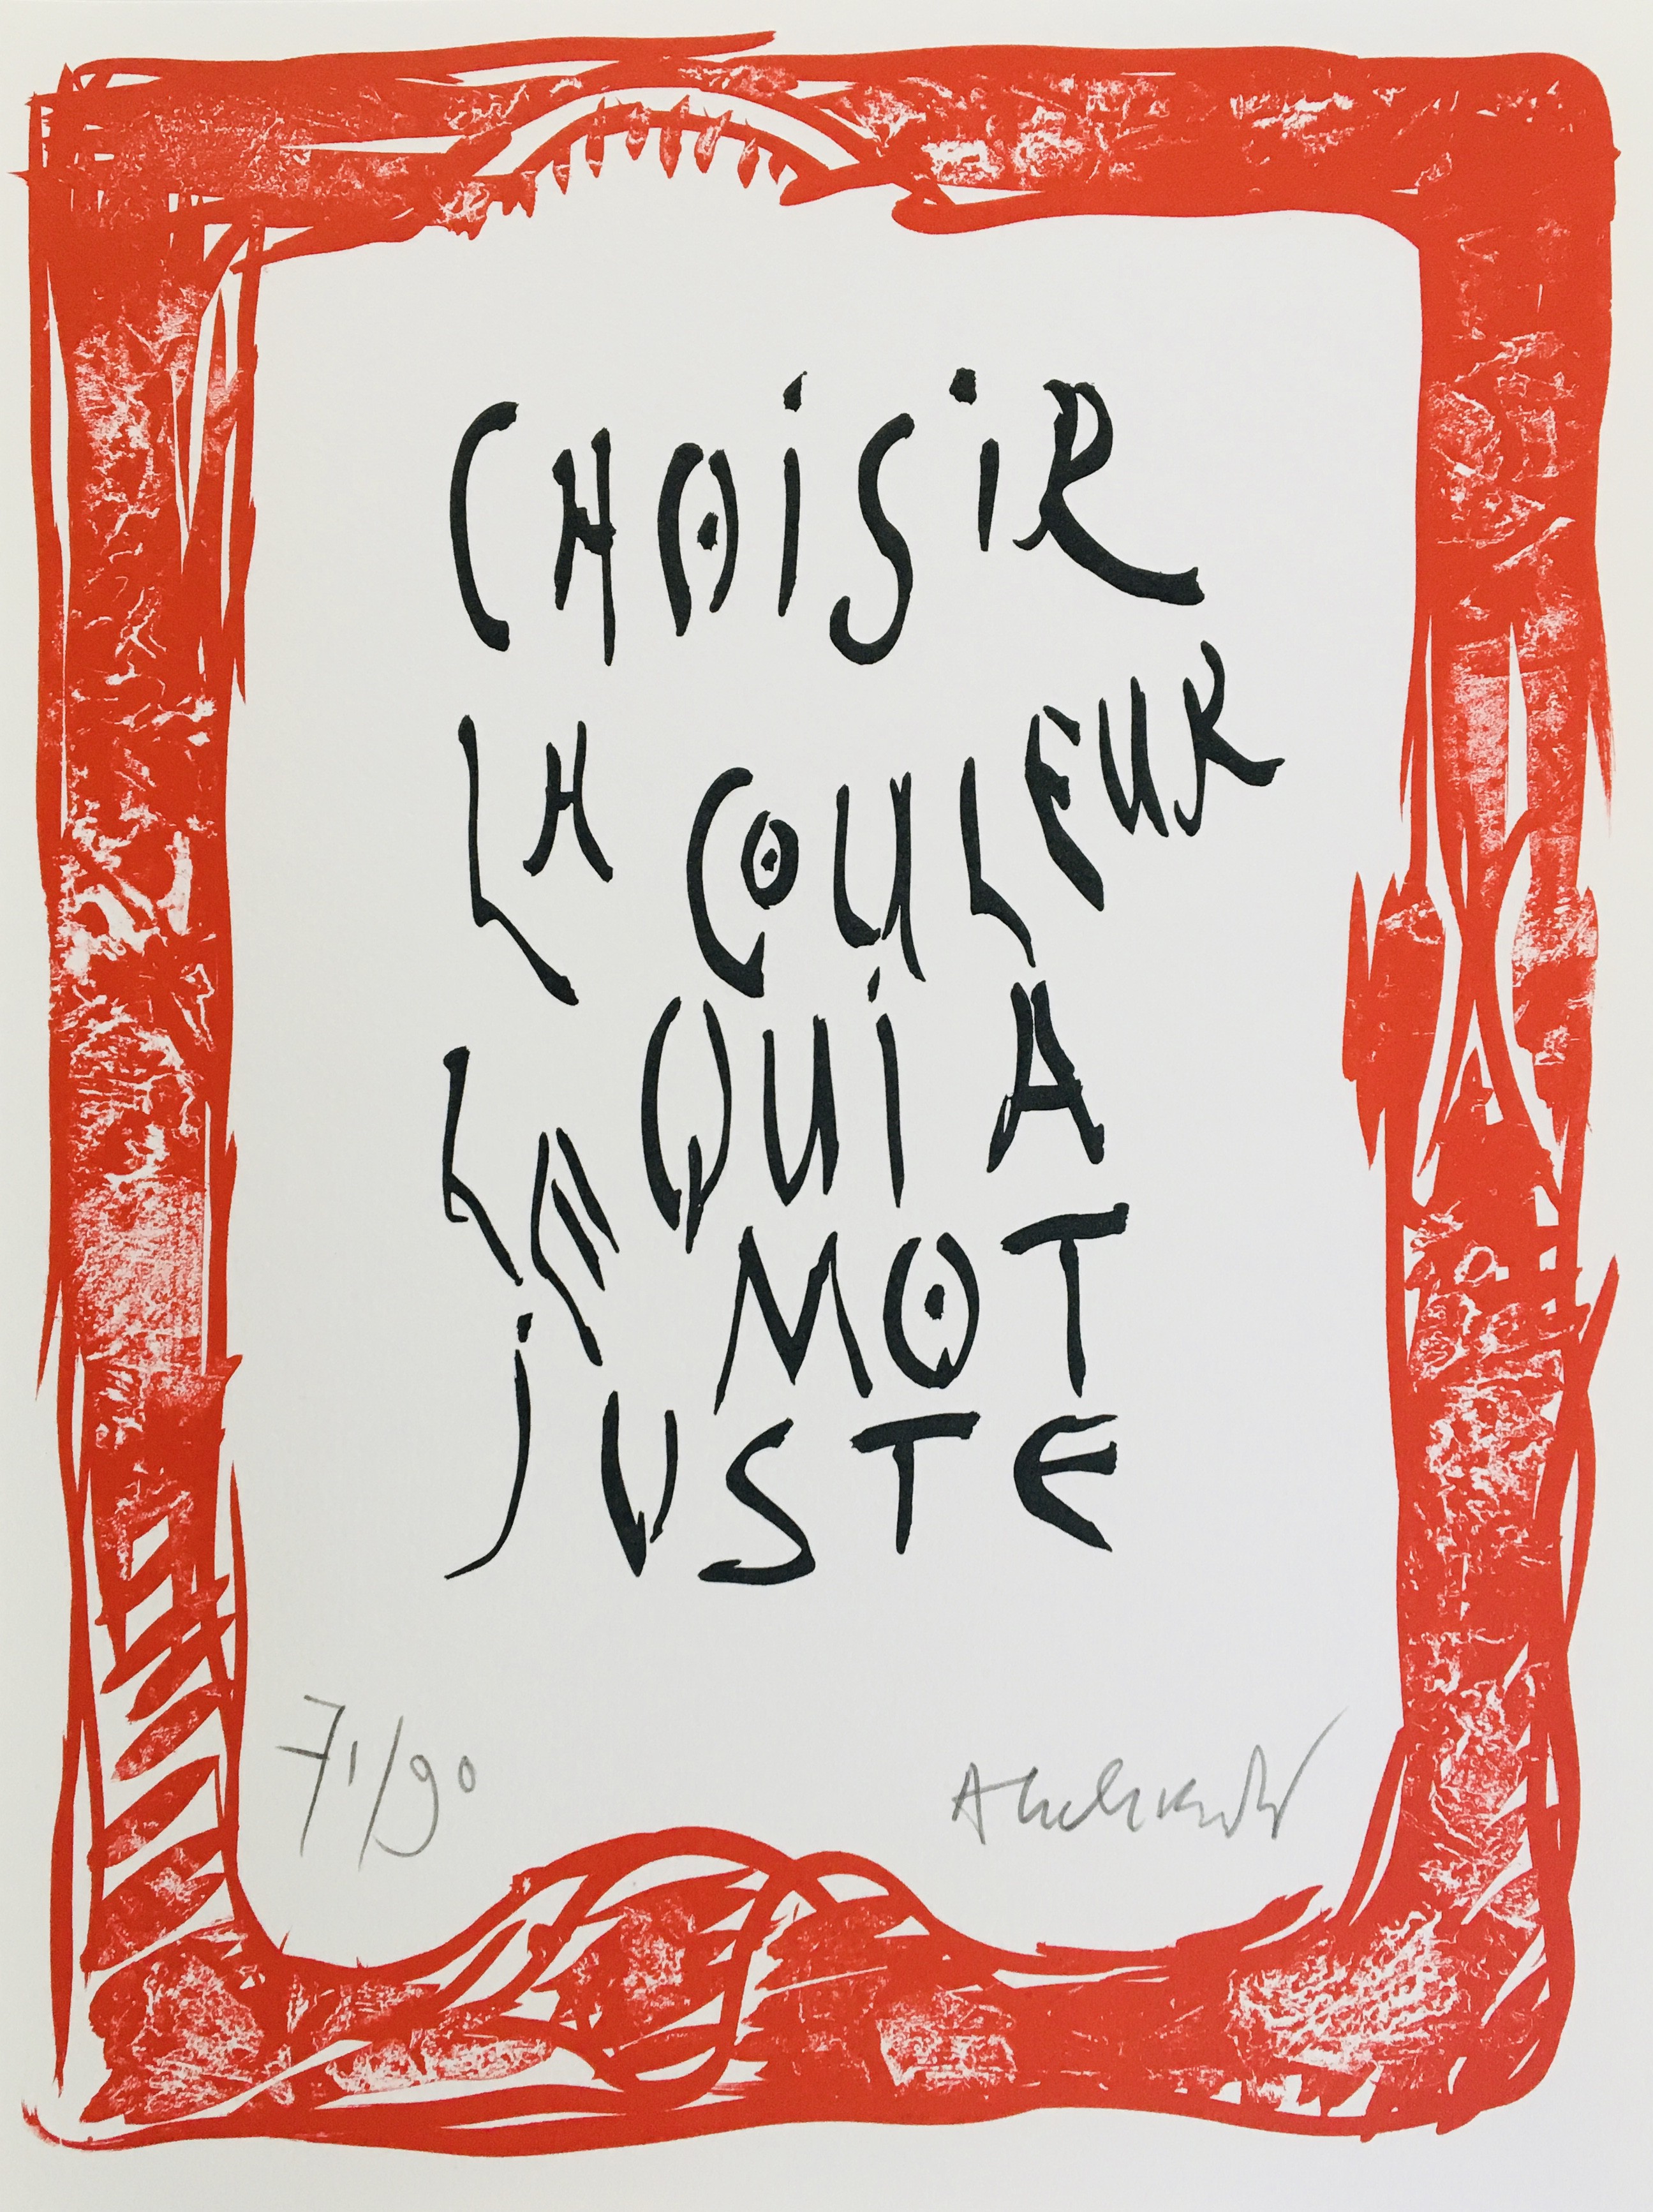 CHOiSiR
LA COULEUR
LA QUi A
MOT
jUSTE
71/90